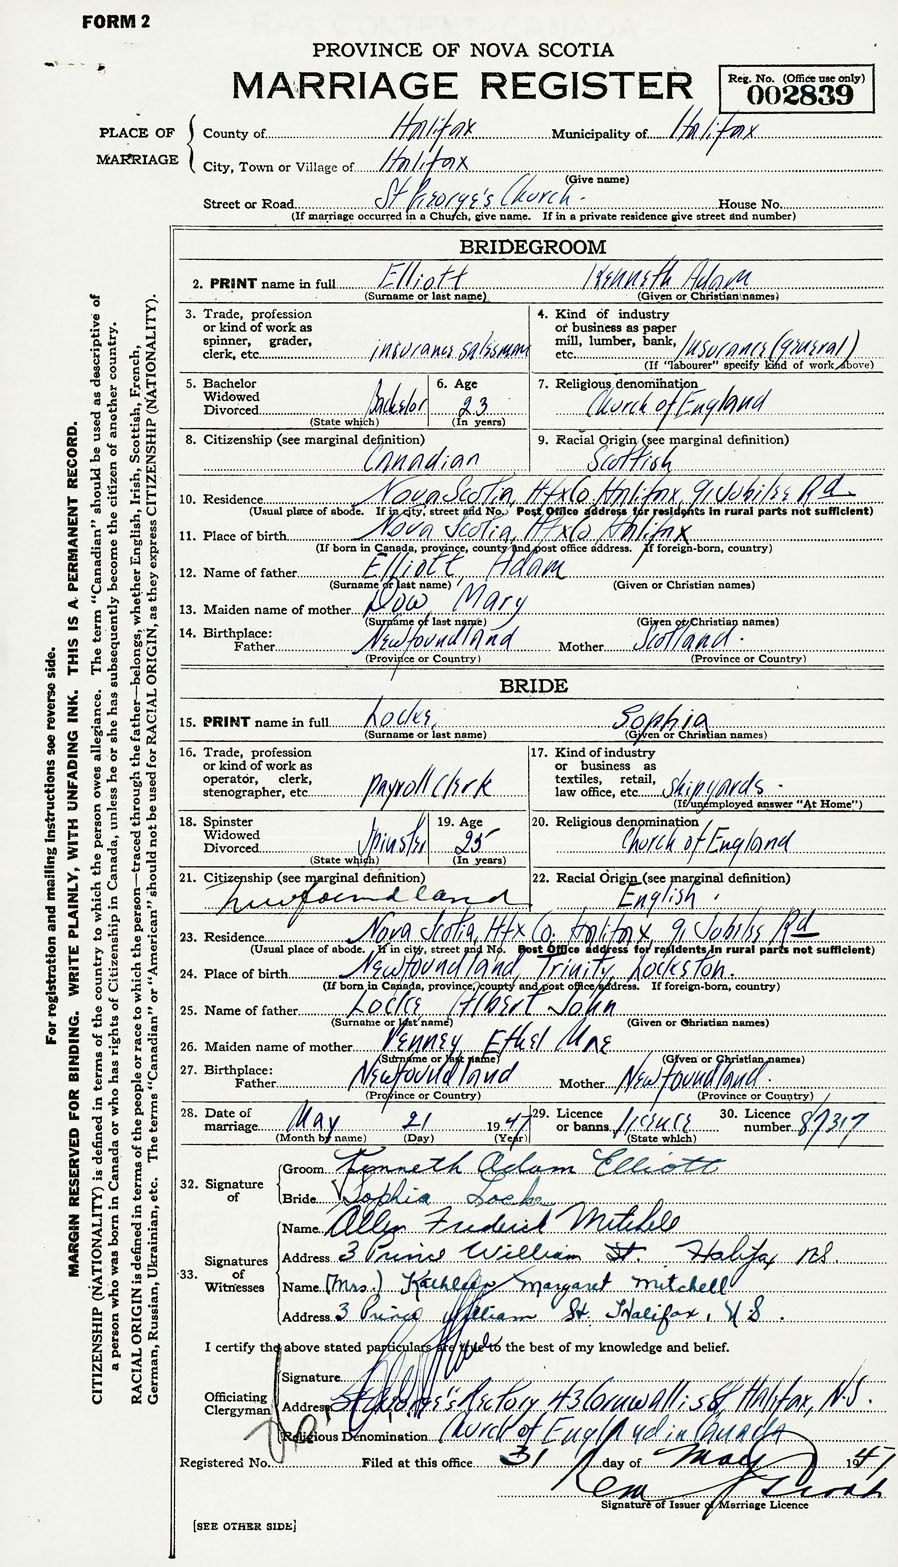 FORM 2
PROVINCE OF NOVA SCOTIA
MARRIAGE REGISTER
Reg. No. (Office use only)
002839
PLACE OF MARRIAGE
County of Halifax Municipality of Halifax
City, Town or Village of Halifax
(Give name)
Street or Road St George's Church. House No.
(If marriage occurred in a Church, give name. If in a private residence give street and number)
BRIDEGROOM
2. PRINT name in full Elliott Kenneth Adam
(Surname or last name) (Given or Christian names)
3. Trade, profession or kind of work as spinner, grader, clerk, etc. insurance salesman
4. Kind of industry or business as paper mill, lumber, bank, etc. Insurance (general)
(If "labourer" specify kind of work above)
5. Bachelor Widowed Divorced Bachelor
(State which)
6. Age 23
(In years)
7. Religious denomination
Church of England
8. Citizenship (see marginal definition)
Canadian
9. Racial Origin (see marginal definition)
Scottish
10. Residence Nova Scotia, Hfx Co Halifax, 91 Jubilee Rd
(Usual place of abode. If in city, street and No. Post Office address for residents in rural parts not sufficient)
11. Place of birth Nova Scotia, Hfx Co Halifax
(If born in Canada, province, county and post office address. If foreign-born, country)
12. Name of father Elliott, Adam
(Surname or last name) (Given or Christian names)
13. Maiden name of mother Dow Mary
(Surname of last name) (Given or Christian names)
14. Birthplace:
Father Newfoundland Mother Scotland.
(Province or Country) (Province or Country)
BRIDE
15. PRINT name in full Locke, Sophia
(Surname or last name) (Given or Christian names)
16. Trade, profession or kind of work as operator, clerk, stenographer, etc. payroll clerk
17. Kind of industry or business as textiles, retail, law office, etc. shipyards.
(If unemployed answer "At Home")
18. Spinster Widowed Divorced Spinster
(State which)
19. Age 25
(In years)
20. Religious denomination
Church of England
21. Citizenship (see marginal definition)
Newfoundland
22. Racial Origin (see marginal definition)
English.
23. Residence Nova Scotia, Hfx Co. Halifax, 91 Jubilee Rd
(Usual place of abode. If in city, street and No. Post Office address for residents in rural parts not sufficient)
24. Place of birth Newfoundland, Trinity, Lockston.
(If born in Canada, province, county and post office address. If foreign-born, country)
25. Name of father Locke Albert John
(Surname or last name) (Given or Christian names)
26. Maiden name of mother Penney Ethel Mae
(Surname or last name) (Given or Christian names)
27. Birthplace:
Father Newfoundland Mother Newfoundland.
(Province or Country) (Province or Country)
28. Date of marriage May 21 1947
(Month by name) (Day) (Year)
29. Licence or banns licence
(State which)
30. Licence number 87317
32. Signature of
Groom Kenneth Adam Elliott
Bride Sophia Locke
33. Signatures of Witnesses
Name Allen Frederick Mitchell
Address 3 Prince William St. Halifax N.S.
Name (Mrs.) Kathleen Margaret Mitchell
Address 3 Prince William St. Halifax, N S.
I certify the above stated particulars are true to the best of my knowledge and belief.
Officiating Clergyman
Signature
Address St George's Rectory 43 Cornwallis St, Halifax, N.S.
Religious Denomination Church of England in Canada
Registered No. Filed at this office 31 day of May 1947
Signature of Issuer of Marriage Licence
[SEE OTHER SIDE]
For registration and mailing instructions see reverse side.
MARGIN RESERVED FOR BINDING. WRITE PLAINLY, WITH UNFADING INK. THIS IS A PERMANENT RECORD.
CITIZENSHIP (NATIONALITY) is defined in terms of the country to which the person owes allegiance. The term "Canadian" should be used as descriptive of
a person who was born in Canada or who has rights of Citizenship in Canada, unless he or she has subsequently become the citizen of another country.
RACIAL ORIGIN is defined in terms of the people or race to which the person—traced through the father—belongs, whether English, Irish, Scottish, French,
German, Russian, Ukrainian, etc. The terms "Canadian" or "American" should not be used for RACIAL ORIGIN, as they express CITIZENSHIP (NATIONALITY).